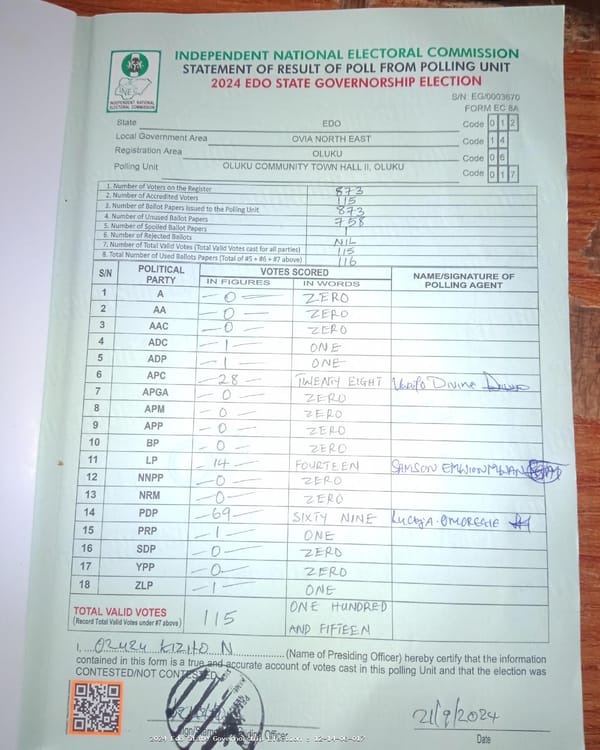 INDEPENDENT NATIONAL ELECTORAL COMMISSION
STATEMENT OF RESULT OF POLL FROM POLLING UNIT
2024 EDO STATE GOVERNORSHIP ELECTION
INEC
INDEPENDENT NATIONAL ELECTORAL COMMISSION
S/N: EG/0003670
FORM EC 8A
State EDO Code 0 1 2
Local Government Area OVIA NORTH EAST Code 1 4
Registration Area OLUKU Code 0 6
Polling Unit OLUKU COMMUNITY TOWN HALL II, OLUKU Code 0 1 7
1. Number of Voters on the Register 873
2. Number of Accredited Voters 115
3. Number of Ballot Papers Issued to the Polling Unit 873
4. Number of Unused Ballot Papers 758
5. Number of Spoiled Ballot Papers 1
6. Number of Rejected Ballots NIL
7. Number of Total Valid Votes (Total Valid Votes cast for all parties) 115
8. Total Number of Used Ballots Papers (Total of #5 + #6 + #7 above) 116
S/N POLITICAL PARTY VOTES SCORED NAME/SIGNATURE OF POLLING AGENT
IN FIGURES IN WORDS
1 A 0 ZERO
2 AA 0 ZERO
3 AAC 0 ZERO
4 ADC 1 ONE
5 ADP 1 ONE
6 APC 28 TWENTY EIGHT Divine
7 APGA 0 ZERO
8 APM 0 ZERO
9 APP 0 ZERO
10 BP 0 ZERO
11 LP 14 FOURTEEN SAMSON EMWIONMWAN
12 NNPP 0 ZERO
13 NRM 0 ZERO
14 PDP 69 SIXTY NINE OMOREGIE
15 PRP 1 ONE
16 SDP 0 ZERO
17 YPP 0 ZERO
18 ZLP 1 ONE
TOTAL VALID VOTES 115 ONE HUNDRED
(Record Total Valid Votes under #7 above) AND FIFTEEN
I, KIZITO N (Name of Presiding Officer) hereby certify that the information
contained in this form is a true and accurate account of votes cast in this polling Unit and that the election was
CONTESTED/NOT CONTESTED
21/9/2024
Date
2024 Edo State Governorship Election - 12-14-06-017